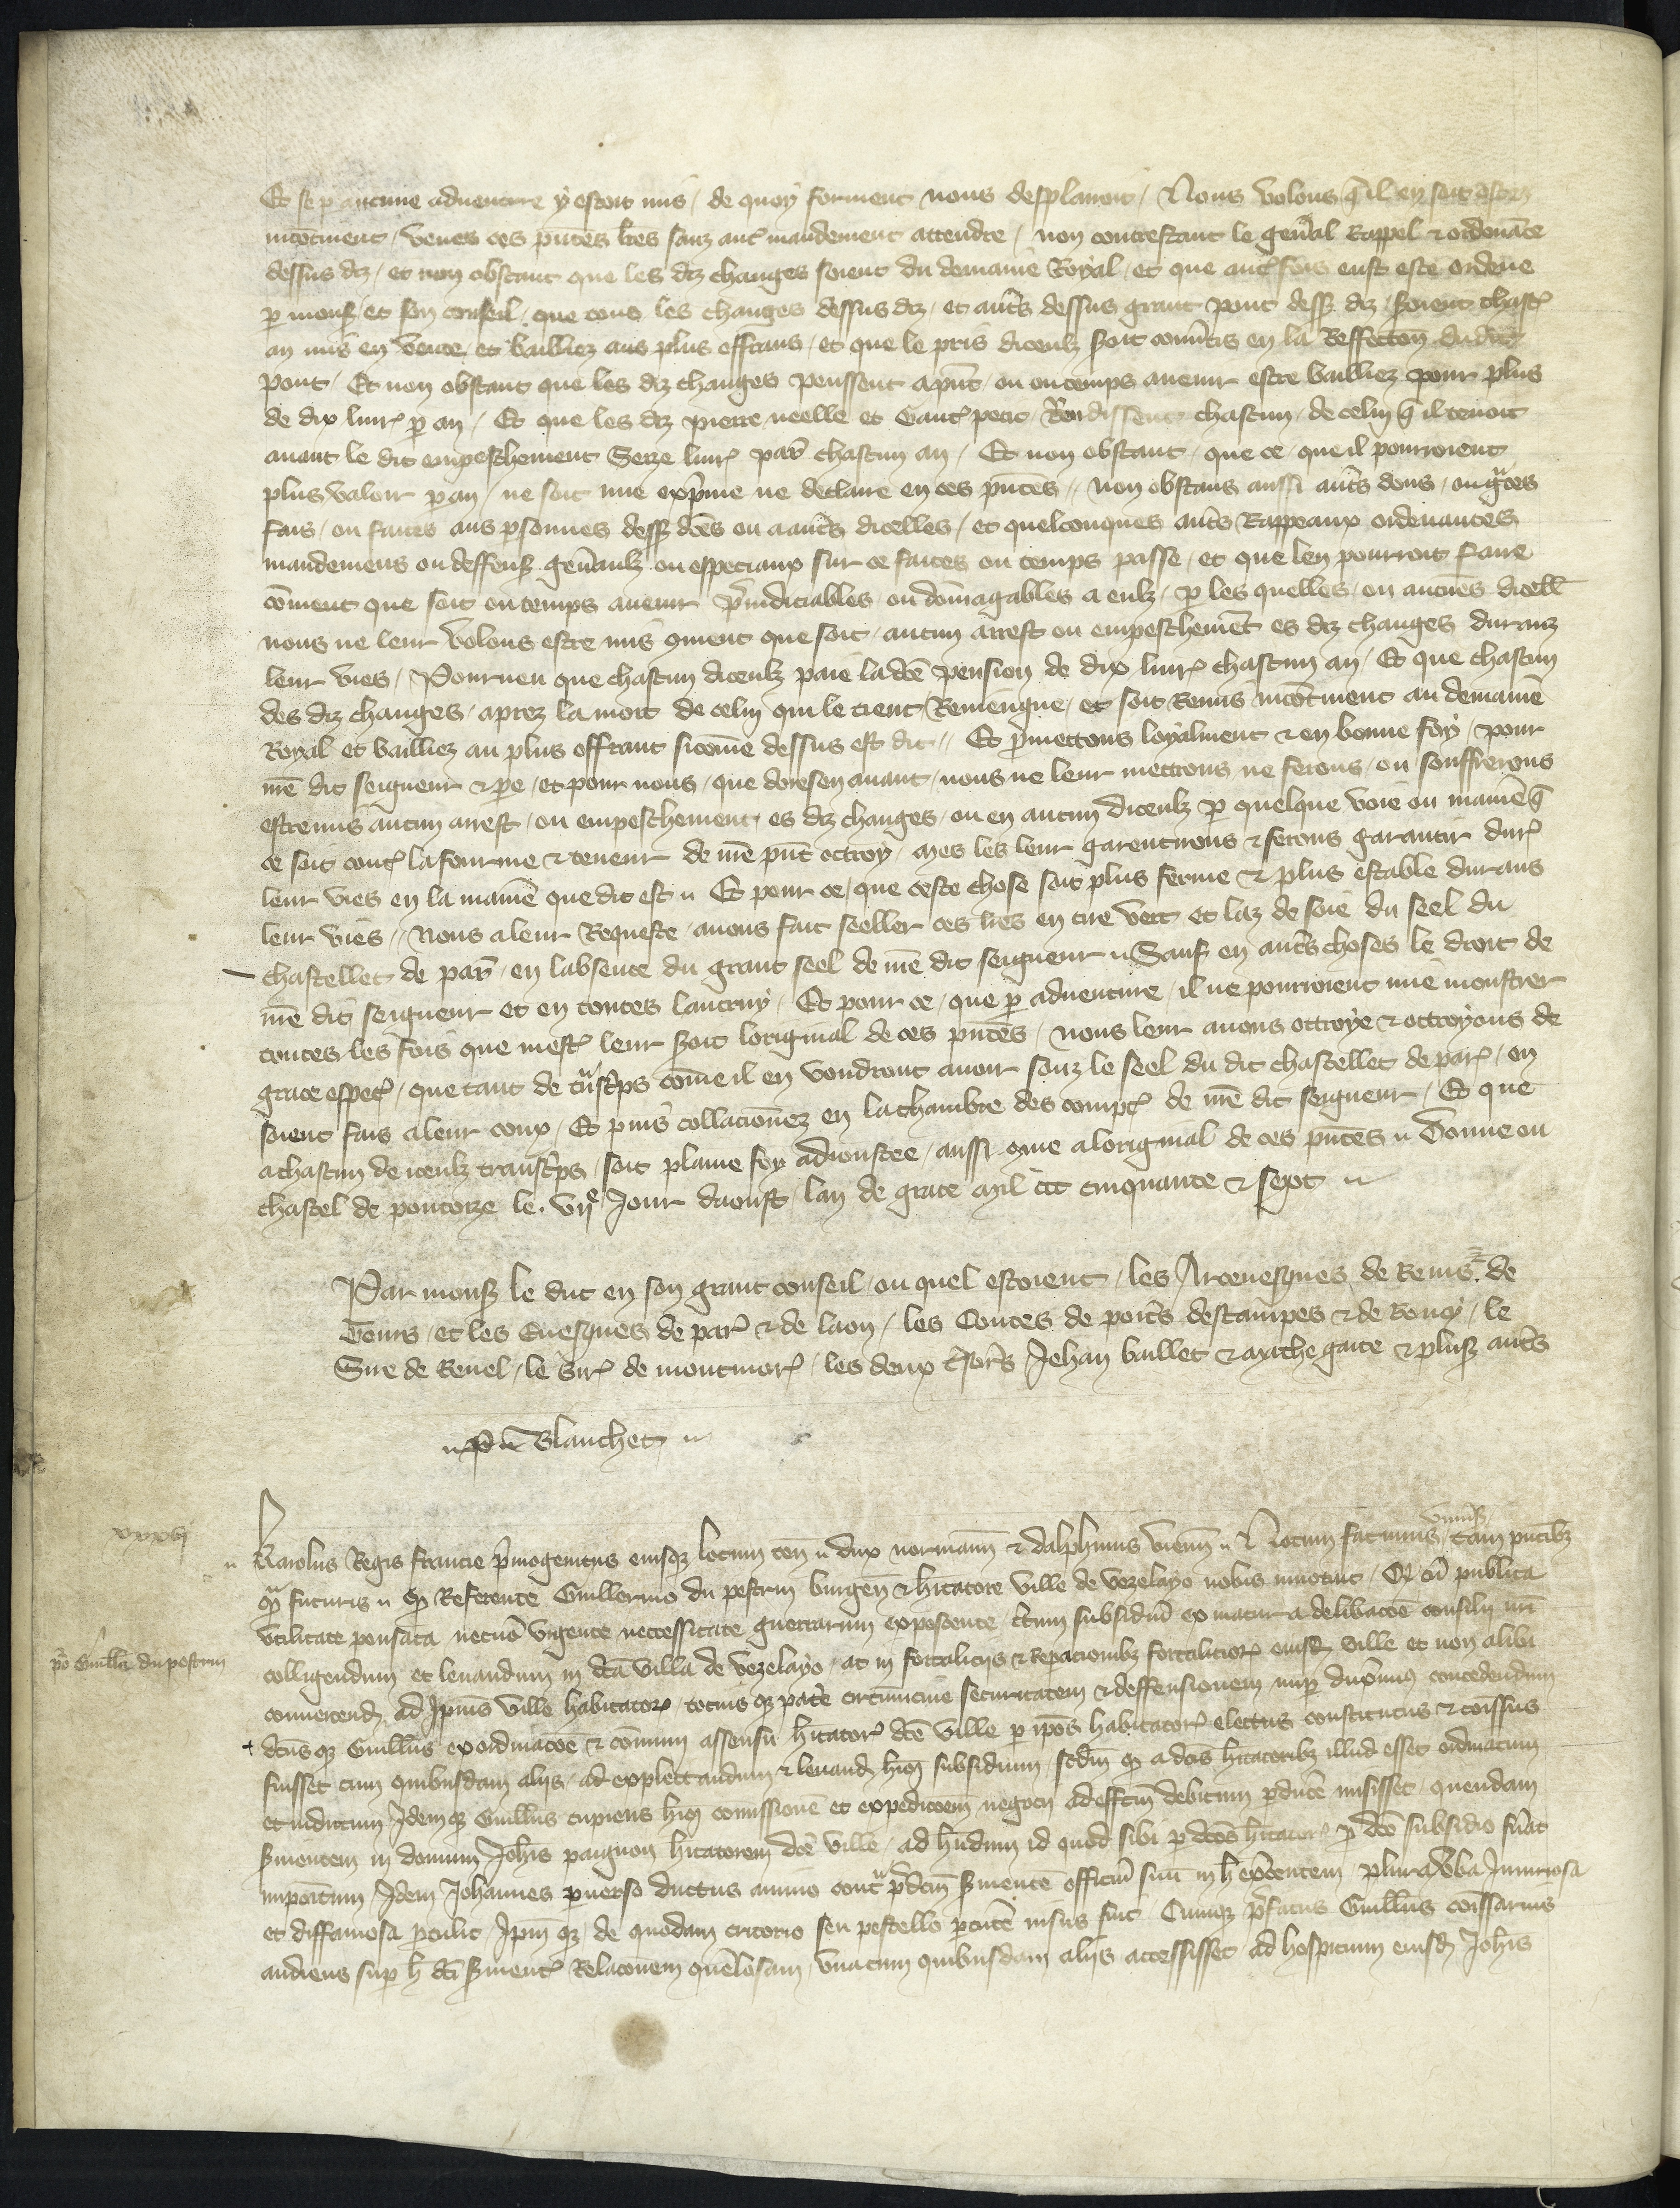 Et se p aucune aduenture y estoit mis / de quoy forment nous desplairoit / Nous volons q̄ il en soit osten
incōtinent / veues ces pn̄tes lr̄es sanz aut̄ mandement attendre / non contrestant le gen̄al Rappel & ordenāce
dessus diz / et non obstant que les diz changes soient du demaine Royal / et que aut̄fois eust este ordene
p monß et son conseil / que touz les changes dessus diz / et aut̄s dessus grant pont dess9 diz / soient chasc̄
an mis en vente et bailliez aus plus offrans / et que le pris diceulz soit conu̅tis en la Reffection du dit
pont / Et non obstant que les diz changes peussent apn̄t ou ou temps auenir estre bailliez pour plus
de dix liur̄ p an / Et que les diz pierre neelle et Gaut̄ petit Rendissent chascun / de celuy q̄ il tenoit
auant le dit empeschement Seze liur̄ par̄ chascun an / Et non obstant / que ce / que il pourroient
plus valoir p an / ne soit mie exp̄me ne declaire en ces pn̄tes / non obstans aussi aut̄s dons / ou gr̄ces
fais / ou faites aus psonnes dess9 dc̄es ou a aut̄s dicelles / et quelconques aut̄s Rappeaux ordenances
mandemens ou deffens9 gen̄aulz ou especiaux sur ce faites ou temps passe / et que len pourroit faire
cōment que soit ou temps auenir p̄iudiciables / ou dōmagables a eulz / p les quelles / ou aucūes dicell̄
nous ne leur volons estre mis 9ment que soit / aucun arrest ou empeschemēt es diz changes duranz
leur vies / Pourueu que chascun diceulz paie la dc̄e pension de dix liur̄ chascun an / Et que chascun
des diz changes / aprez la mort de celuy qui le tient Remeigne / et soit Remis incōtinent au demaine
Royal et bailliez au plus offrant sicōme dessus est dit // Et p̄mettons loyalment & en bonne foy / pour
mē dit seigneur & pe / et pour nous / que doresenauant / nous ne leur mettrons ne ferons / ou souffrerons
estre mis aucun arrest / ou empeschement es diz changes / ou en aucun diceulz p quelque voie ou manie q̄
ce soit cont̄ la fourme & teneur de mē pn̄t ottroy / mes les leur garentirons & ferons garantir dur̄
leur vies en la manie que dit est // Et pour ce / que ceste chose soit plus ferme & plus estable durans
leur vies // Nous a leur Requeste / auons fait seeller ces lr̄es en cire vert et laz de soie du seel du
chastellet de par̄ / en labsence du grant seel de mē dit seigneur // Sauf en aut̄s choses le droit de
mē dit seigneur et en toutes lautruy / Et pour ce / que p aduenture / il ne pourroient mie monstrer
toutes les fois que mest̄ leur soit loriginal de ces pn̄tes / nous leur auons ottroye & ottroyons de
grace espec̄ / que tant de tr̄nsc̄ps cōme il en voudront auoir souz le seel du dit chastellet de par̄ / en
soient fais a leur coux / Et puis collacionez en la chambre des compt̄ de mē dit seigneur / Et que
a chascun de iceulz transc̄ps / soit plaine foy adioustee / aussi 9me a loriginal de ces pn̄tes // Donne ou
chastel de pontoize le. vije Jour daoust lan de grace mil ccc cinquante & sept //
Par monß le duc en son grant conseil / ou quel estoient / les Arceuesques de Reins. de
Tours / et les Euesques de par̄ & de laon / les Contes de poit̄s destampes & de Roucy / le
Sire de Reuel / le sir̄ de montmor̄ / les deux t̄sor̄s Jehan baillet & mache gaite & plus9 aut̄s
// P // Blanchet //
xxxvj
vniu̅ß
Karolus Regis francie p̄mogenitus eiusqz locum ten̄ // dux normann̄ & dalphinus vienn̄ // Notum facimus / tam pn̄tibz
qr̄ futuris // q9 Referente Guillermo du pestrin burgen̄ & hītatore ville de vezelayo nobis innotuit / Q9 cū publica
pō Guill̄o du pestrin
vtilitate pensata necnō vrgente neccessitate guerrarum exposcente / c̄tum subsidiū ex matura delibacōe consilij nr̄i
colligendum et leuandum in dc̄a villa de vezelayo / ac in fortaliciis & Repacionibz fortalicior̄ eiusd9 ville et non alibi
conuertend9 ad Jpius ville habitator̄ / tociusqz pat̄e circūuicine securitatem & deffensionem nup duxim9 concedendum
dc̄usqz Guill̄us ex ordinacōe & cōmuni assensu hītator̄ dc̄e ville p ip̄os habitator̄ electus constitutus & cōissus
fuisset cum quibusdam aliis / ad explectandum & leuand9 hi9 subsidium / scdm̄ q9 a dc̄is hītatoribz illud esset ordinatum
et indictum Jdemqz Guill̄us cupiens hi9 comissionē et expedicōem negocii ad effc̄m debitum pducē misisset / quendam
s̄uientem in domum Joh̄is paignon hītatorem dc̄e ville / ad hn̄dum id quod sibi p dc̄os hītator̄ p dc̄o subsidio fūat
impoitum Jdem Johannes puerso ductus animo contr̄ p̄dc̄m s̄uientē officiū suū in h̄ exc̄entem plura vba Jniuriosa
et diffamosa ptulit / Jpm̄qz de quodam tritorio seu pestello pcutē nisus fuit / Cumqz p̄fatus Guill̄us cōissarius
audiens sup h̄ dc̄i s̄uient̄ Relacōnem quel̄osam / vnacum quibusdam aliis accessisset ad hospicium eiusd9 Joh̄is